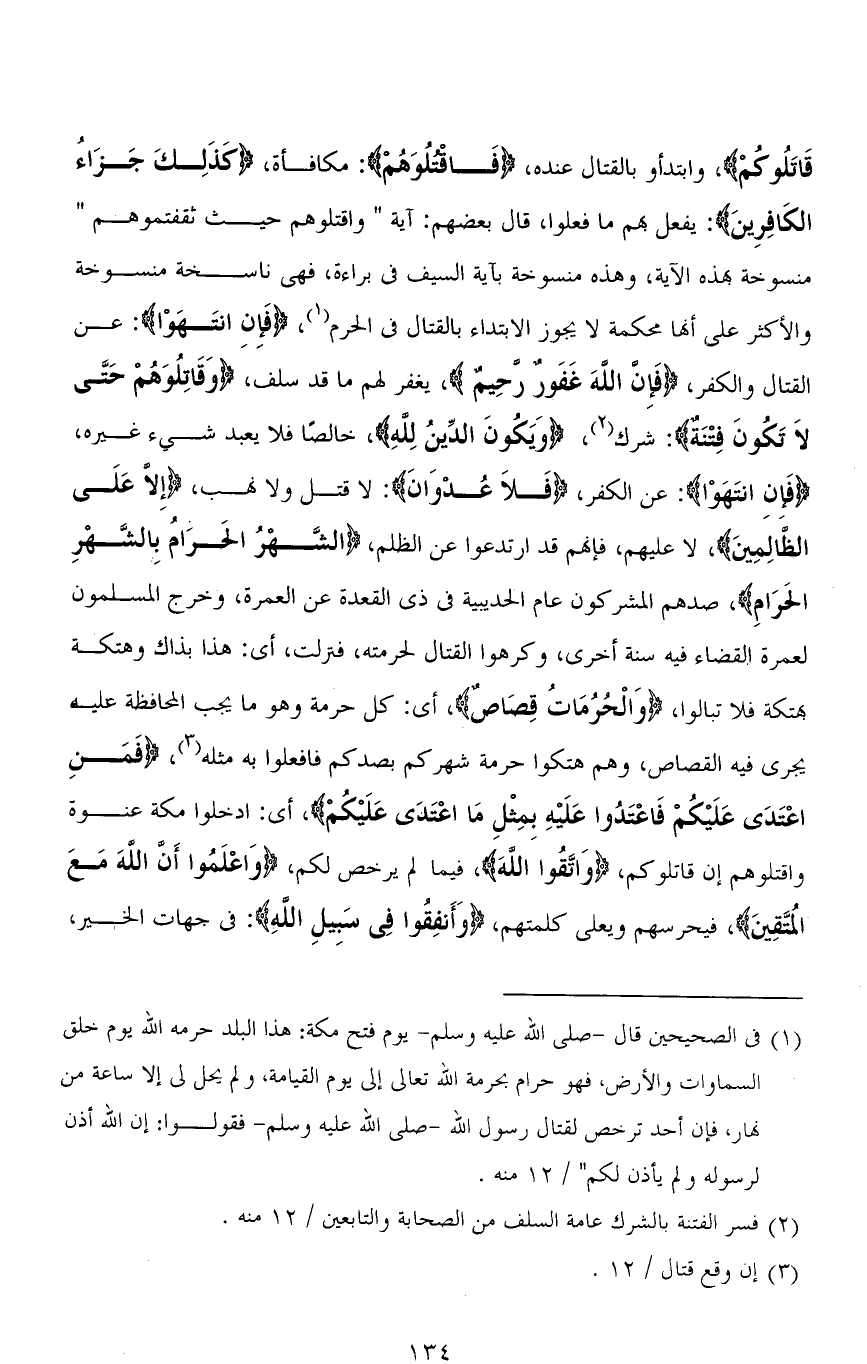 قَاتَلُوكُمْ﴾، وابتدأو بالقتال عنده، ﴿فَاقْتُلُوهُمْ﴾: مكافأة، ﴿كَذَلِكَ جَزَاءُ
الكَافِرِينَ﴾: يفعل بهم ما فعلوا، قال بعضهم: آية " واقتلوهم حيث ثقفتموهم "
منسوخة بهذه الآية، وهذه منسوخة بآية السيف فى براءة، فهى ناسخة منسوخة
والأكثر على أنها محكمة لا يجوز الابتداء بالقتال فى الحرم(١)، ﴿فَإِنِ انتَهَوْا﴾: عن
القتال والكفر، ﴿فَإِنَّ اللَّهَ غَفُورٌ رَّحِيمٌ ﴾، يغفر لهم ما قد سلف، ﴿وَقَاتِلُوهُمْ حَتَّى
لاَ تَكُونَ فِتْنَةٌ﴾: شرك(٢)، ﴿وَيَكُونَ الدِّينُ لِلَّهِ﴾، خالصًا فلا يعبد شيء غيره،
﴿فَإِنِ انتَهَوْا﴾: عن الكفر، ﴿فَلاَ عُدْوَانَ﴾: لا قتل ولا نهب، ﴿إِلاَّ عَلَى
الظَّالِمِينَ﴾، لا عليهم، فإنهم قد ارتدعوا عن الظلم، ﴿الشَّهْرُ الحَرَامُ بِالشَّهْرِ
الحَرَامِ﴾، صدهم المشركون عام الحديبية فى ذى القعدة عن العمرة، وخرج المسلمون
لعمرة القضاء فيه سنة أخرى، وكرهوا القتال لحرمته، فنزلت، أى: هذا بذاك وهتكة
بهتكة فلا تبالوا، ﴿وَالْحُرُمَاتُ قِصَاصٌ﴾، أى: كل حرمة وهو ما يجب المحافظة عليه
يجرى فيه القصاص، وهم هتكوا حرمة شهركم بصدكم فافعلوا به مثله(٣)، ﴿فَمَنِ
اعْتَدَى عَلَيْكُمْ فَاعْتَدُوا عَلَيْهِ بِمِثْلِ مَا اعْتَدَى عَلَيْكُمْ﴾، أى: ادخلوا مكة عنوة
واقتلوهم إن قاتلوكم، ﴿وَاتَّقُوا اللَّهَ﴾، فيما لم يرخص لكم، ﴿وَاعْلَمُوا أَنَّ اللَّهَ مَعَ
الُمتَّقِينَ﴾، فيحرسهم ويعلى كلمتهم، ﴿وَأَنفِقُوا فِى سَبِيلِ اللَّهِ﴾: فى جهات الخير،
(١) فى الصحيحين قال -صلى الله عليه وسلم- يوم فتح مكة: هذا البلد حرمه الله يوم خلق
السماوات والأرض، فهو حرام بحرمة الله تعالى إلى يوم القيامة، و لم يحل لى إلا ساعة من
نهار، فإن أحد ترخص لقتال رسول الله -صلى الله عليه وسلم- فقولوا: إن الله أذن
لرسوله و لم يأذن لكم" / ١٢ منه .
(٢) فسر الفتنة بالشرك عامة السلف من الصحابة والتابعين / ١٢ منه .
(٣) إن وقع قتال / ١٢ .
١٣٤